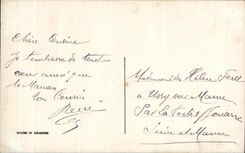 Chère Cousine
Je t'embrasse de tout
cœur ainsi que
ta Maman
ton Cousin
René
Mademoiselle Hélène
à Ussy sur Marne
Par la Ferté s/ Jouarre
Seine et Marne